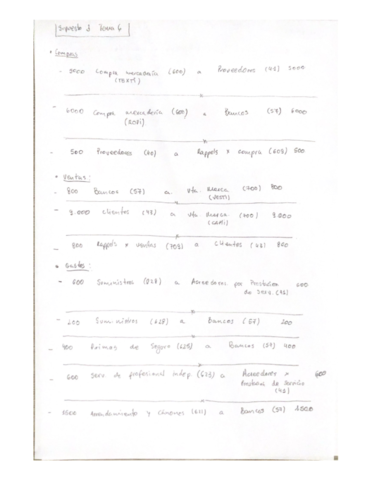 Supuesto 3 Tema 6
• Compras
- 3000 Compra mercadería (600) a Proveedores (40) 3000
- 6000 Compra mercadería (600) a Bancos (57) 6000
- 500 Proveedores (40) a Rappels x compra (609) 500
• Ventas:
- 800 Bancos (57) a Vta. (700) 800
- 3.000 Clientes (43) a Vta (700) 3.000
- 800 Rappels x ventas (709) a Clientes (43) 800
• Gastos:
- 600 Suministros (628) a Acreedores por Prestación 600
de Serv. (41)
- 200 Suministros (628) a Bancos (57) 200
- 400 Primas de Seguro (625) a Bancos (57) 400
- 600 Serv. de profesional indep. (623) a Acreedores x 600
Prestac. de Servicio
(41)
- Arrendamiento y cánones (621) a Bancos (57)